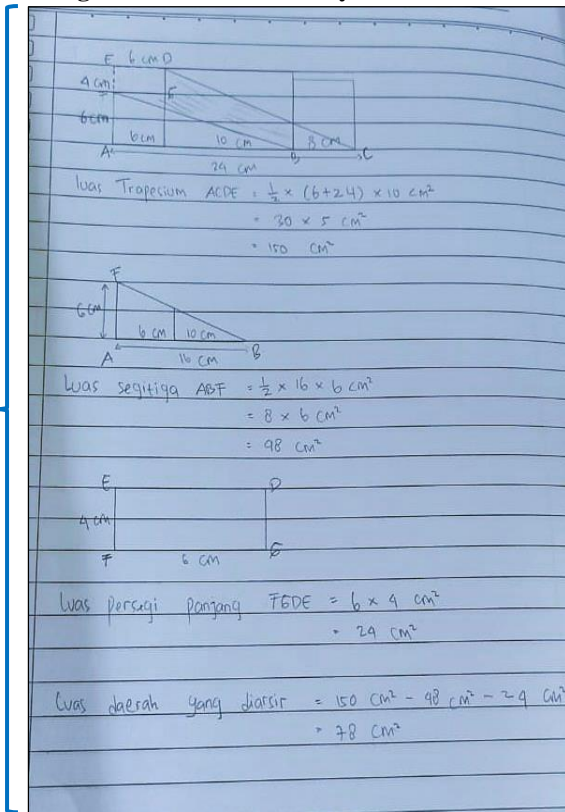 E 6 cm D
4 cm
F G
6 cm
6 cm 10 cm 8 cm
A B C
24 cm
luas Trapesium ACDE = ½ × (6+24) × 10 cm²
= 30 × 5 cm²
= 150 cm²
F
6 cm
6 cm 10 cm
A B
16 cm
Luas segitiga ABF = ½ × 16 × 6 cm²
= 8 × 6 cm²
= 48 cm²
E D
4 cm
F 6 cm G
Luas persegi panjang FGDE = 6 × 4 cm²
= 24 cm²
Luas daerah yang diarsir = 150 cm² - 48 cm² - 24 cm²
= 78 cm²